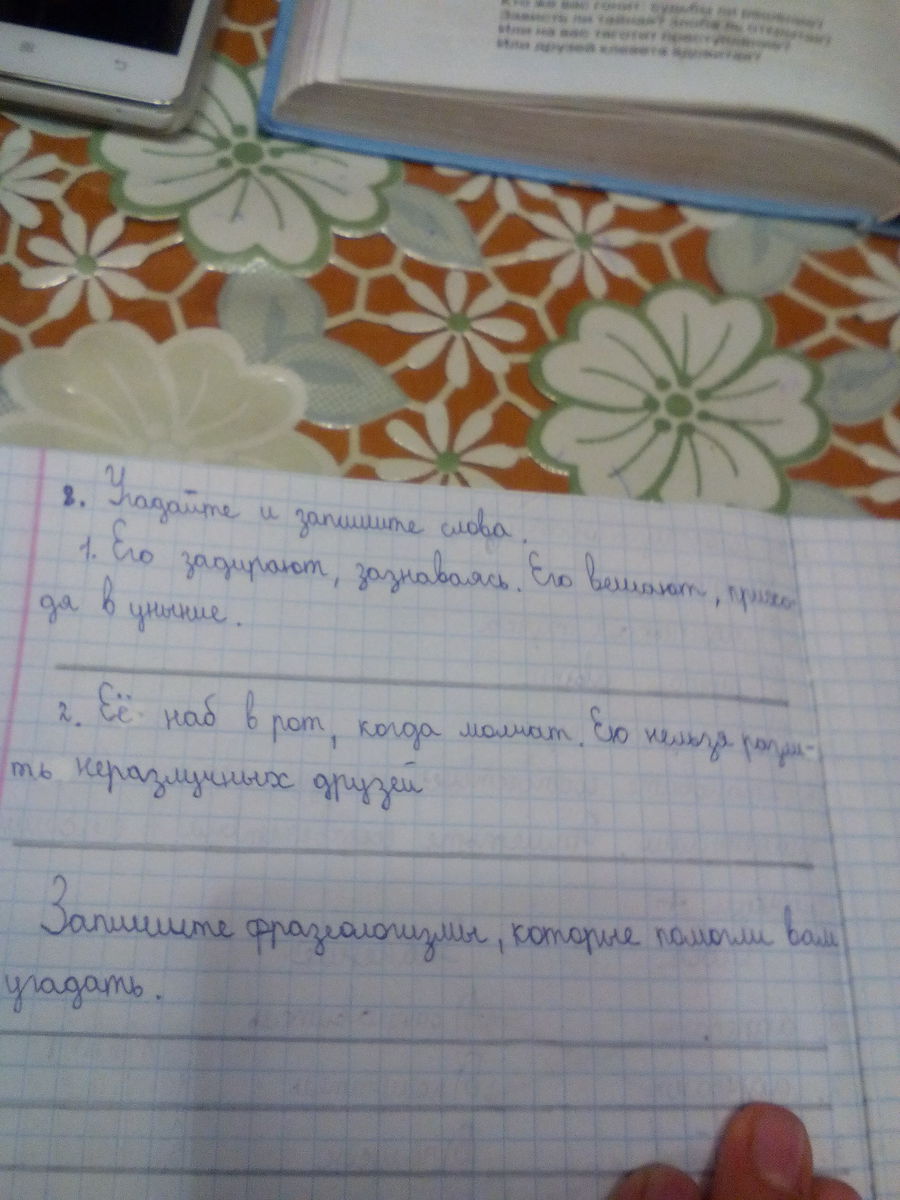 Кто же вас гонит: судьбы ли решение?
Зависть ли тайная? злоба ль открытая?
Или на вас тяготит преступление?
Или друзей клевета ядовитая?
8. Угадайте и запишите слова.
1. Его задирают, зазнаваясь. Его вешают, прихо-
дя в уныние.
2. Её наб в рот, когда молчат. Ею нельзя разли-
ть неразлучных друзей
Запишите фразеологизмы, которые помогли вам
угадать.